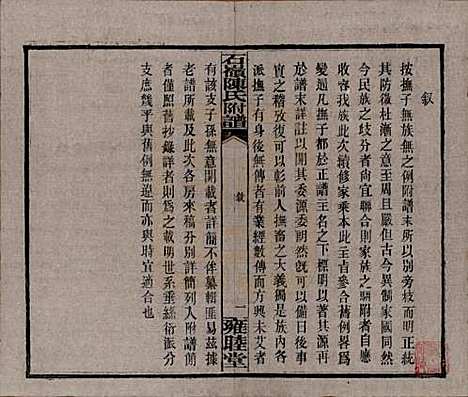 叙
按撫子無族無之例附譜未所以別旁枝而正統
其防微杜漸之意周且嚴但古今異制家國同然
今民族之歧分者尚宜聯合則家族之駢附者自應
收容然我此次續修家乘本此主旨故舊例畧為
變通凡撫子都於正譜主名之下標明以我子某
於譜末詳註以開其委源委朗然既可以備日後事
實之稽攷復可以彰前人撫畜之大義獨是族內各
派撫子有身後無傳者有業經數傳而方興未艾者
石嶺陳氏附譜
叙
一
雍睦堂
有該支子孫無意開載者詳蘭不侔纂輯匪易茲據
各房草譜所開之來稿分別詳列入附譜而前
者僅照舊抄錄詳者則為之載明世系垂絲衍派分
支庶幾乎與舊例無違而亦與時宜適合也